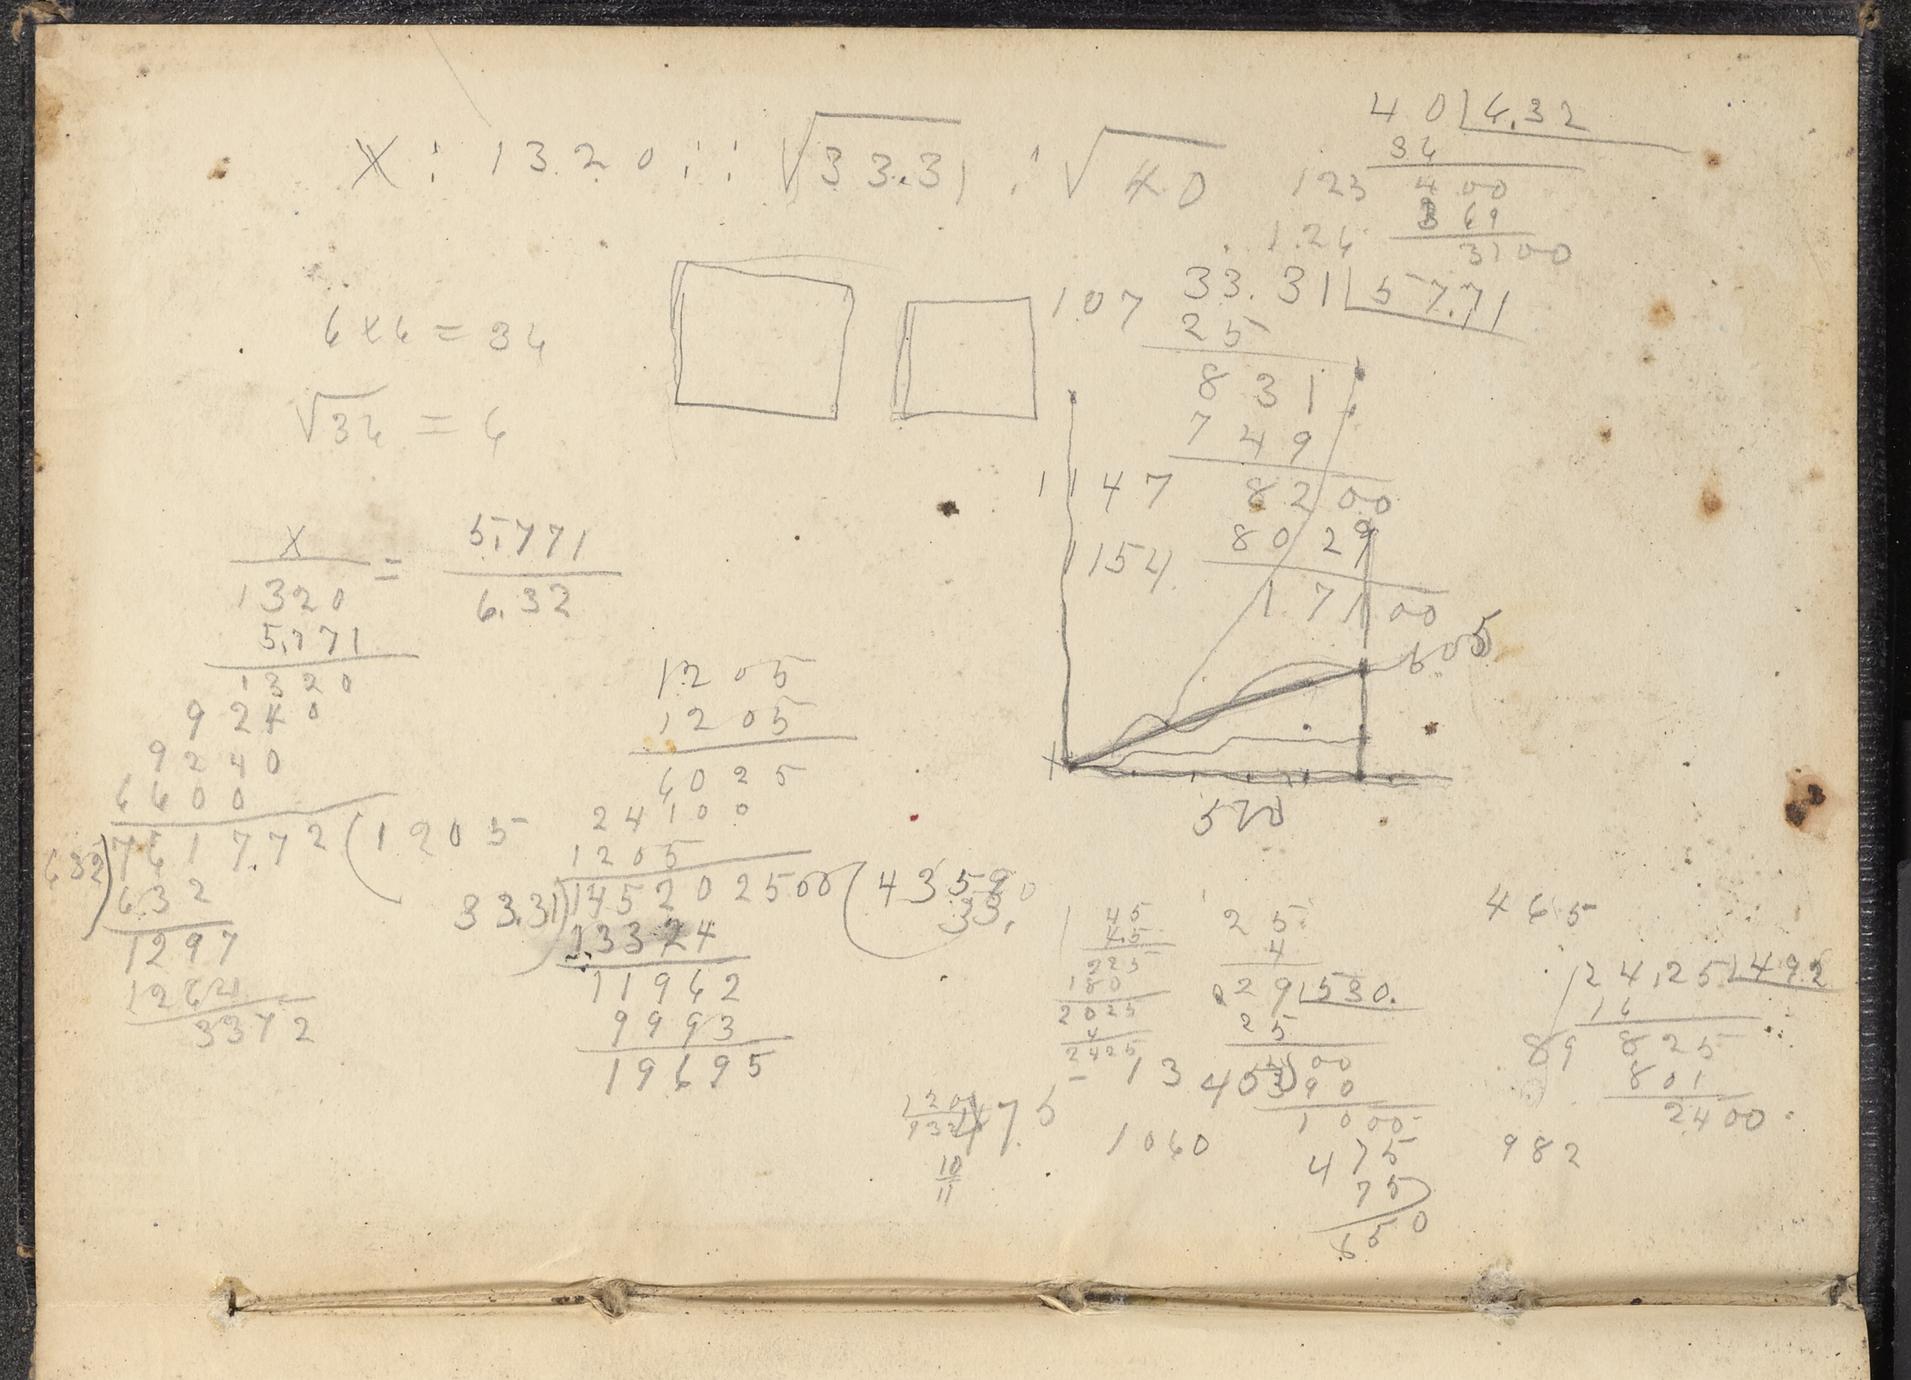 X : 1320 : : √33.31 : √40
40 6.32
36
123 400
369
1.26 3100
33.31 57.71
107
25
831
749
1147 8200
8029
1154 17100
6x6 = 36
√36 = 6
X = 5.771
1320 6.32
5.771
1320
9240
9240
6600
632) 7617.72 (1205
632
1297
1264
3372
1205
1205
6025
24100
1205
33.31) 145202500 (43590
33.
13324
11962
9993
19695
605
570
45
45
225
180
2025
4
2425
25
4
29 530.
25
13 403 00
90
1000
1060
475
75
650
10
11
475
465
24.25 492
16
89 825
801
2400
982